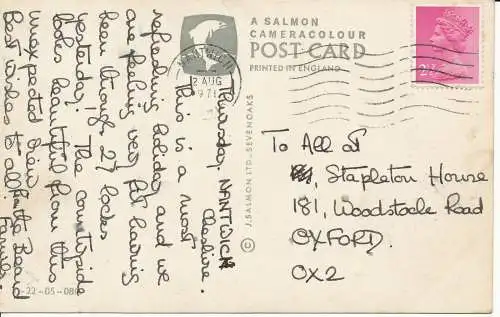 A SALMON
CAMERACOLOUR
POST CARD
PRINTED IN ENGLAND
NANTWICH
2 AUG
197
© J. SALMON LTD · SEVENOAKS
2½
To All at
Stapleton House
181, Woodstock Road
OXFORD.
OX2
Thursday. NANTWICH
Cheshire.
This is a most
refreshing holiday and we
are feeling very fit having
been through 27 locks
yesterday! The countryside
looks beautiful from this
unexpected view.
Best wishes to all. from the Read
Families.
-22-05-08